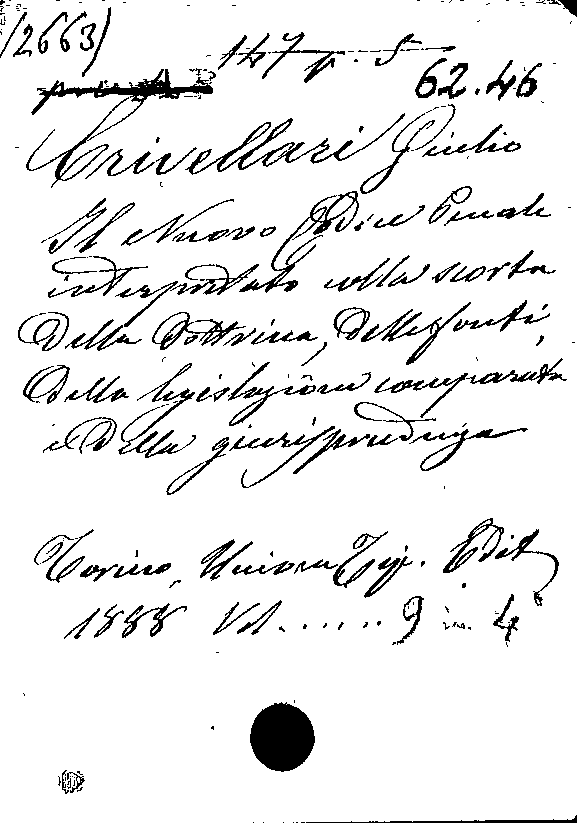 (2663)
147 p. 5
62.46
Crivellari Giulio
Il Nuovo Codice Penale
interpretato colla scorta
della dottrina, delle fonti,
della legislazione comparata
e della giurisprudenza
Torino, Unione Tip. Edit
1888 Vol...... 9 in 4°